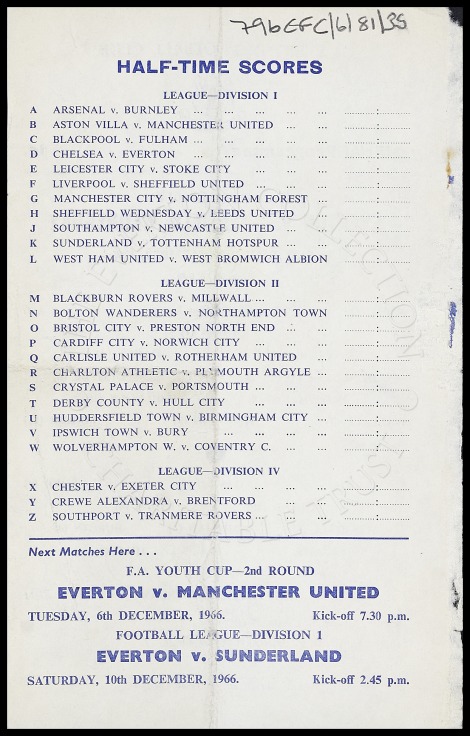 796EFC/6/81/35
HALF-TIME SCORES
LEAGUE—DIVISION I
A ARSENAL v. BURNLEY ... ... ... ... ............:............
B ASTON VILLA v. MANCHESTER UNITED ... ... ............:............
C BLACKPOOL v. FULHAM ... ... ... ... ... ............:............
D CHELSEA v. EVERTON ... ... ... ... ............:............
E LEICESTER CITY v. STOKE CITY ... ... ... ............:............
F LIVERPOOL v. SHEFFIELD UNITED ... ... ... ............:............
G MANCHESTER CITY v. NOTTINGHAM FOREST ... ............:............
H SHEFFIELD WEDNESDAY v. LEEDS UNITED ... ............:............
J SOUTHAMPTON v. NEWCASTLE UNITED ... ... ............:............
K SUNDERLAND v. TOTTENHAM HOTSPUR ... ... ............:............
L WEST HAM UNITED v. WEST BROMWICH ALBION ............:............
LEAGUE—DIVISION II
M BLACKBURN ROVERS v. MILLWALL ... ... ... ............:............
N BOLTON WANDERERS v. NORTHAMPTON TOWN ............:............
O BRISTOL CITY v. PRESTON NORTH END ... ... ............:............
P CARDIFF CITY v. NORWICH CITY ... ... ... ............:............
Q CARLISLE UNITED v. ROTHERHAM UNITED ... ............:............
R CHARLTON ATHLETIC v. PLYMOUTH ARGYLE ... ............:............
S CRYSTAL PALACE v. PORTSMOUTH ... ... ... ............:............
T DERBY COUNTY v. HULL CITY ... ... ... ............:............
U HUDDERSFIELD TOWN v. BIRMINGHAM CITY ... ............:............
V IPSWICH TOWN v. BURY ... ... ... ... ............:............
W WOLVERHAMPTON W. v. COVENTRY C. ... ... ............:............
LEAGUE—DIVISION IV
X CHESTER v. EXETER CITY ... ... ... ... ............:............
Y CREWE ALEXANDRA v. BRENTFORD ... ... ............:............
Z SOUTHPORT v. TRANMERE ROVERS ... ... ... ............:............
Next Matches Here . . .
F.A. YOUTH CUP—2nd ROUND
EVERTON v. MANCHESTER UNITED
TUESDAY, 6th DECEMBER, 1966. Kick-off 7.30 p.m.
FOOTBALL LEAGUE—DIVISION 1
EVERTON v. SUNDERLAND
SATURDAY, 10th DECEMBER, 1966. Kick-off 2.45 p.m.